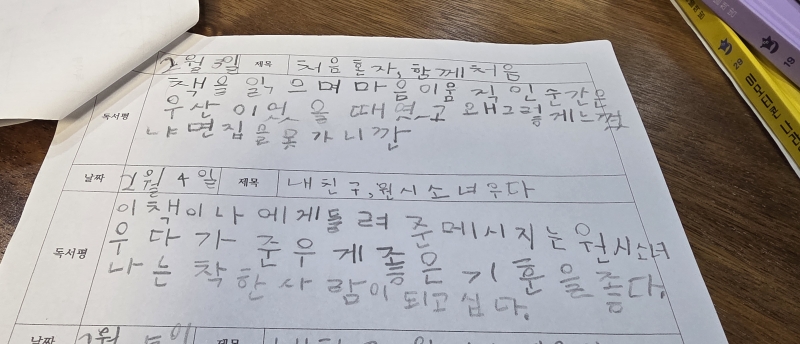 2월 3일 제목 처음혼자, 함께처음
책을 읽 으며 마음이움 직 인 순간은
독서평 우산 이잇 을 때 였고 왜그렇게느꼈
냐 면집을못가니깐
날짜 2월 4일 제목 내친구, 원시소녀우다
이책이나에게들려 준메시지는원시소녀
독서평 우 다 가 준우 게 좋은 기 훈을좋다.
나 는 착 한사 람이되고십다.
날짜 2월 제목